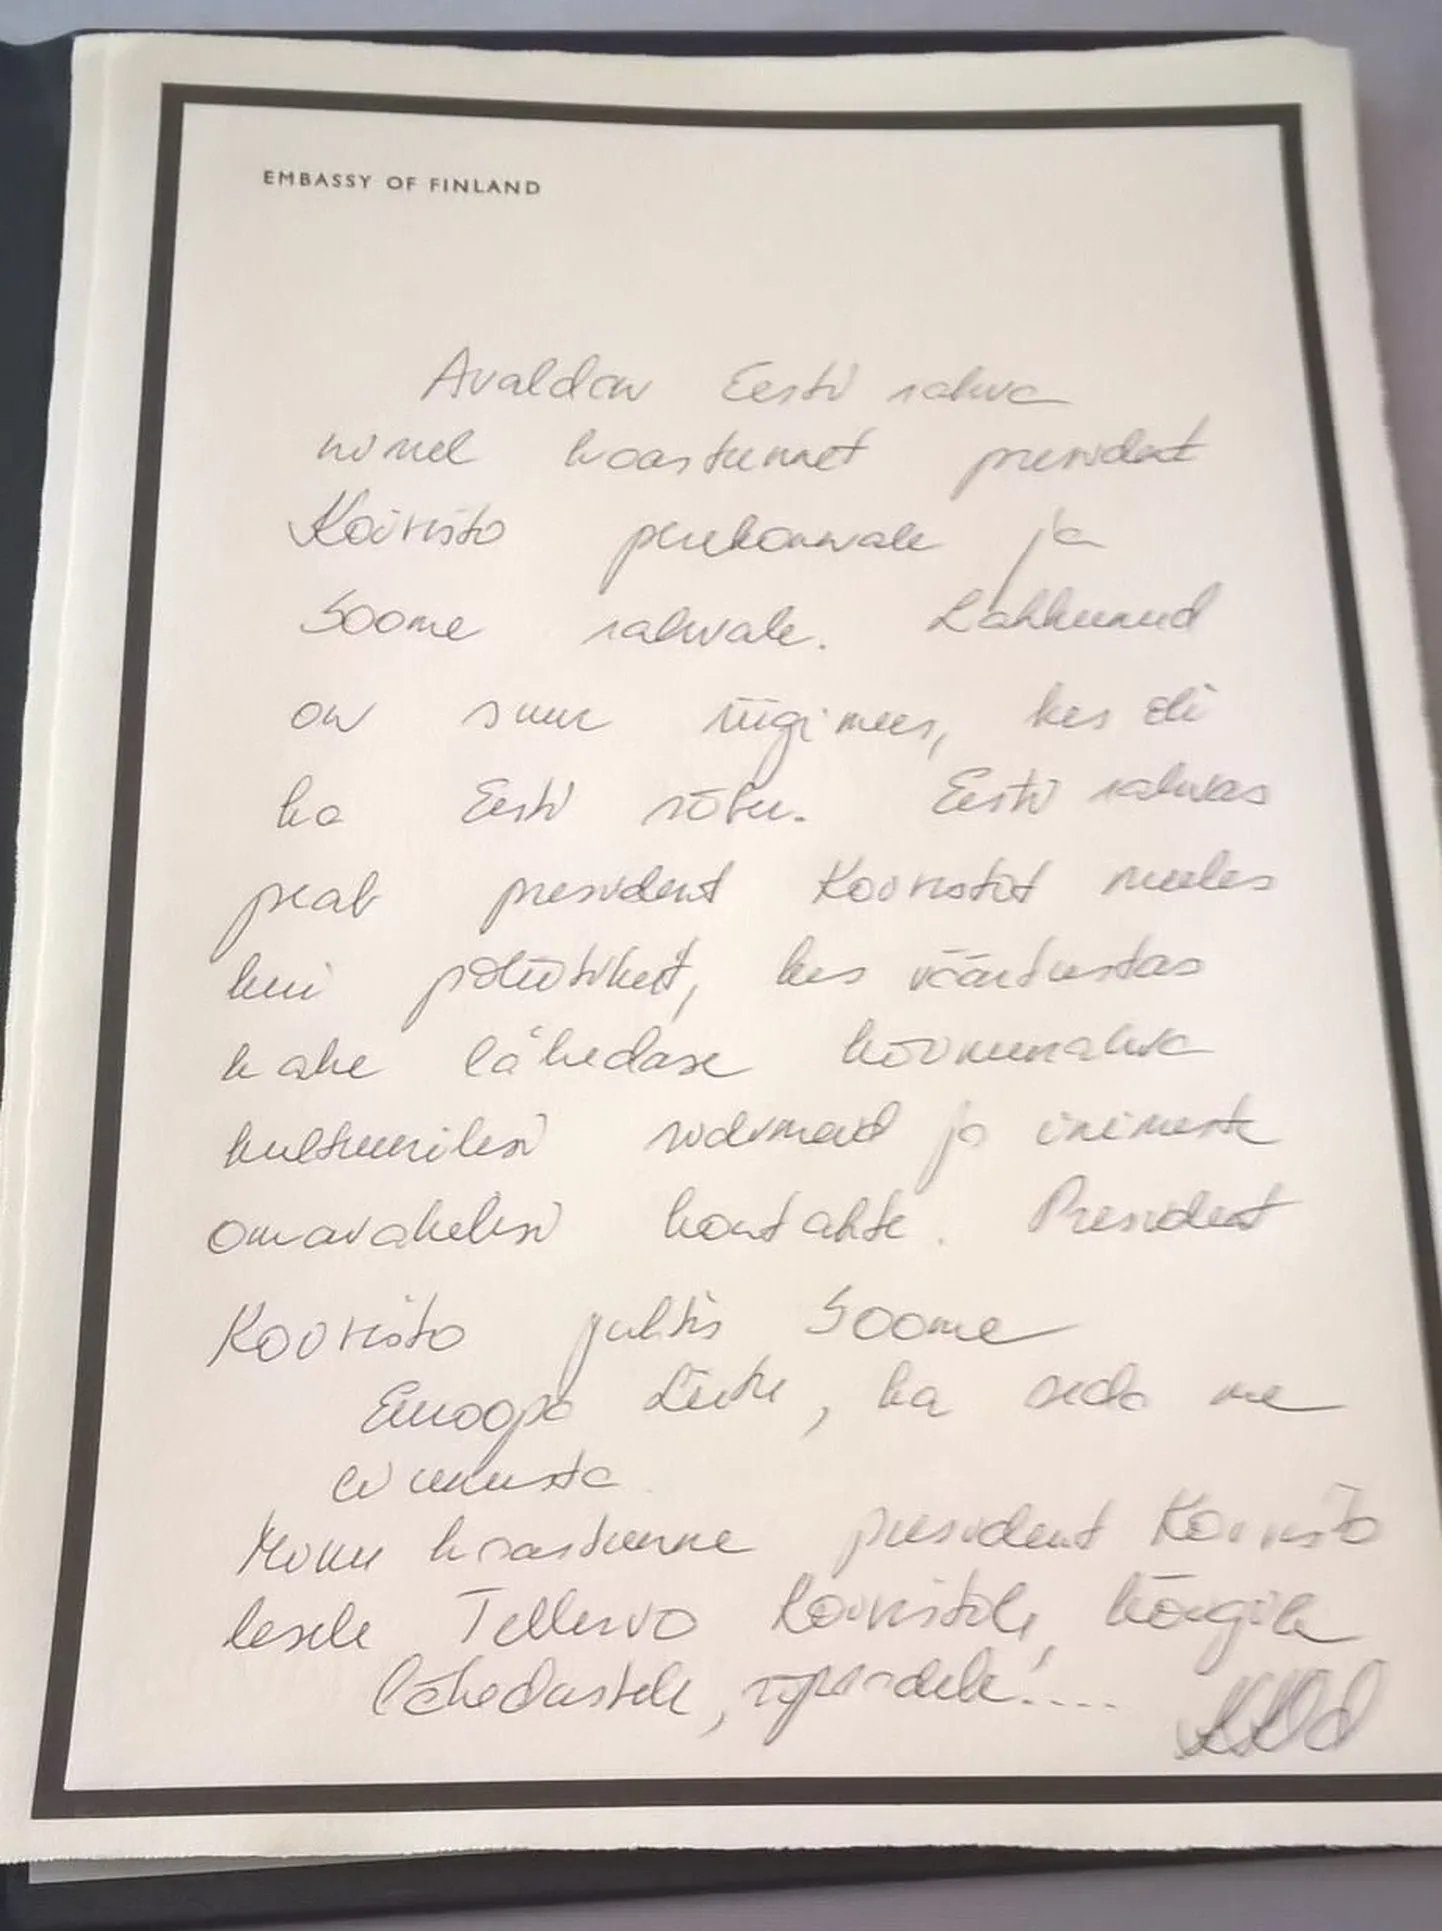 EMBASSY OF FINLAND
Avaldan Eesti rahva
nimel kaastunnet president
Koivisto perekonnale ja
Soome rahvale. Lahkunud
on suur riigimees, kes oli
ka Eesti sõber. Eesti rahvas
peab president Koivistot meeles
kui poliitikut, kes väärtustas
kahe lähedase hõimurahva
kultuurilisi sidemeid ja inimeste
omavahelisi kontakte. President
Koivisto juhtis Soome
Euroopa Liitu, ka seda me
ei unusta
Minu kaastunne president Koivisto
lesele Tellervo Koivistole, kõigile
lähedastele, sõpradele!....